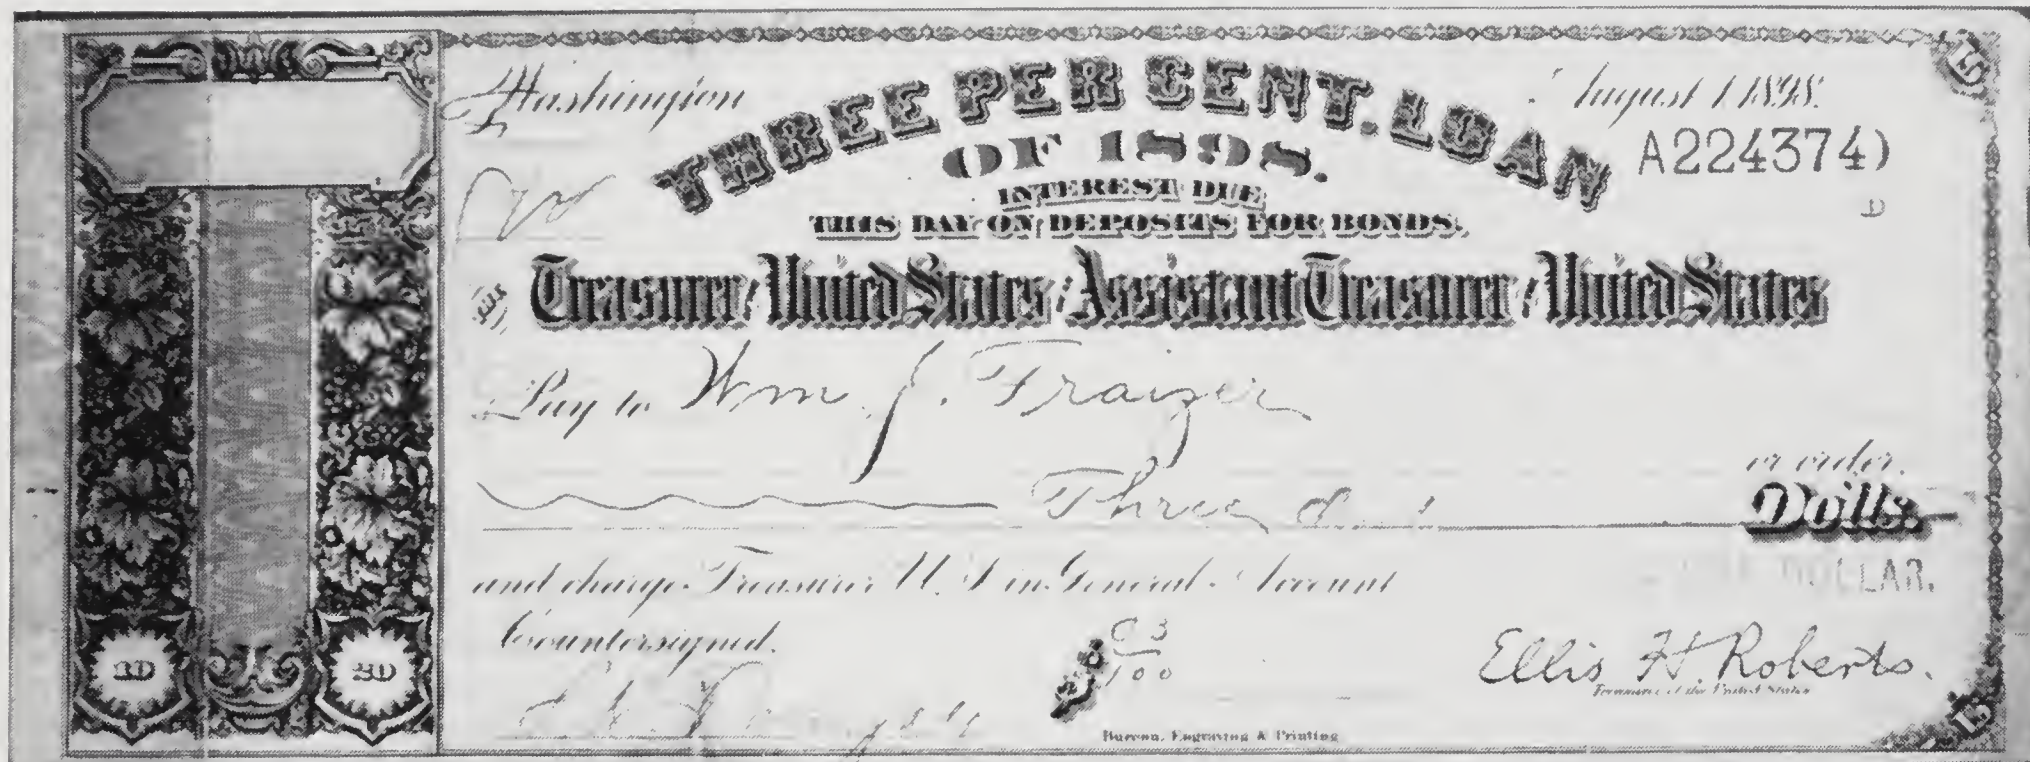 Washington
August 1 1898.
THREE PER CENT. LOAN
OF 1898.
A224374)
INTEREST DUE
D
THIS DAY ON DEPOSITS FOR BONDS.
Treasurer United States Assistant Treasurer United States
Pay to Wm. J. Fraizer
or order.
Three
Dolls.
DOLLAR.
and charge Treasurer U.S. in General Account
Countersigned.
03
100
Ellis H. Roberts.
Treasurer of the United States
Bureau, Engraving & Printing